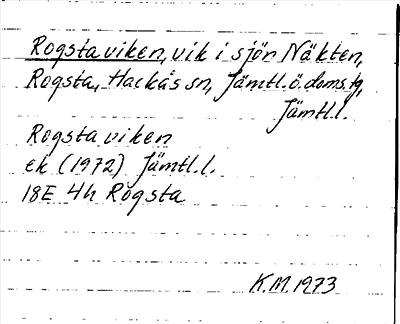 Rogstaviken, vik i sjön Näkten,
Rogsta, Hackås sn, Jämtl. ö. doms. tg,
Jämtl. l.
Rogstaviken
ek (1972) Jämtl. l.
18E 4h Rogsta
K.M. 1973